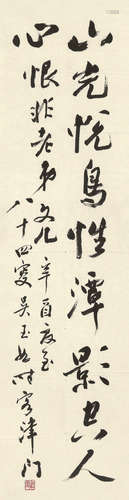 山光悦鳥性潭影空人
心恨非老弟文几辛酉夏至
八十四叟吴玉如时客津门